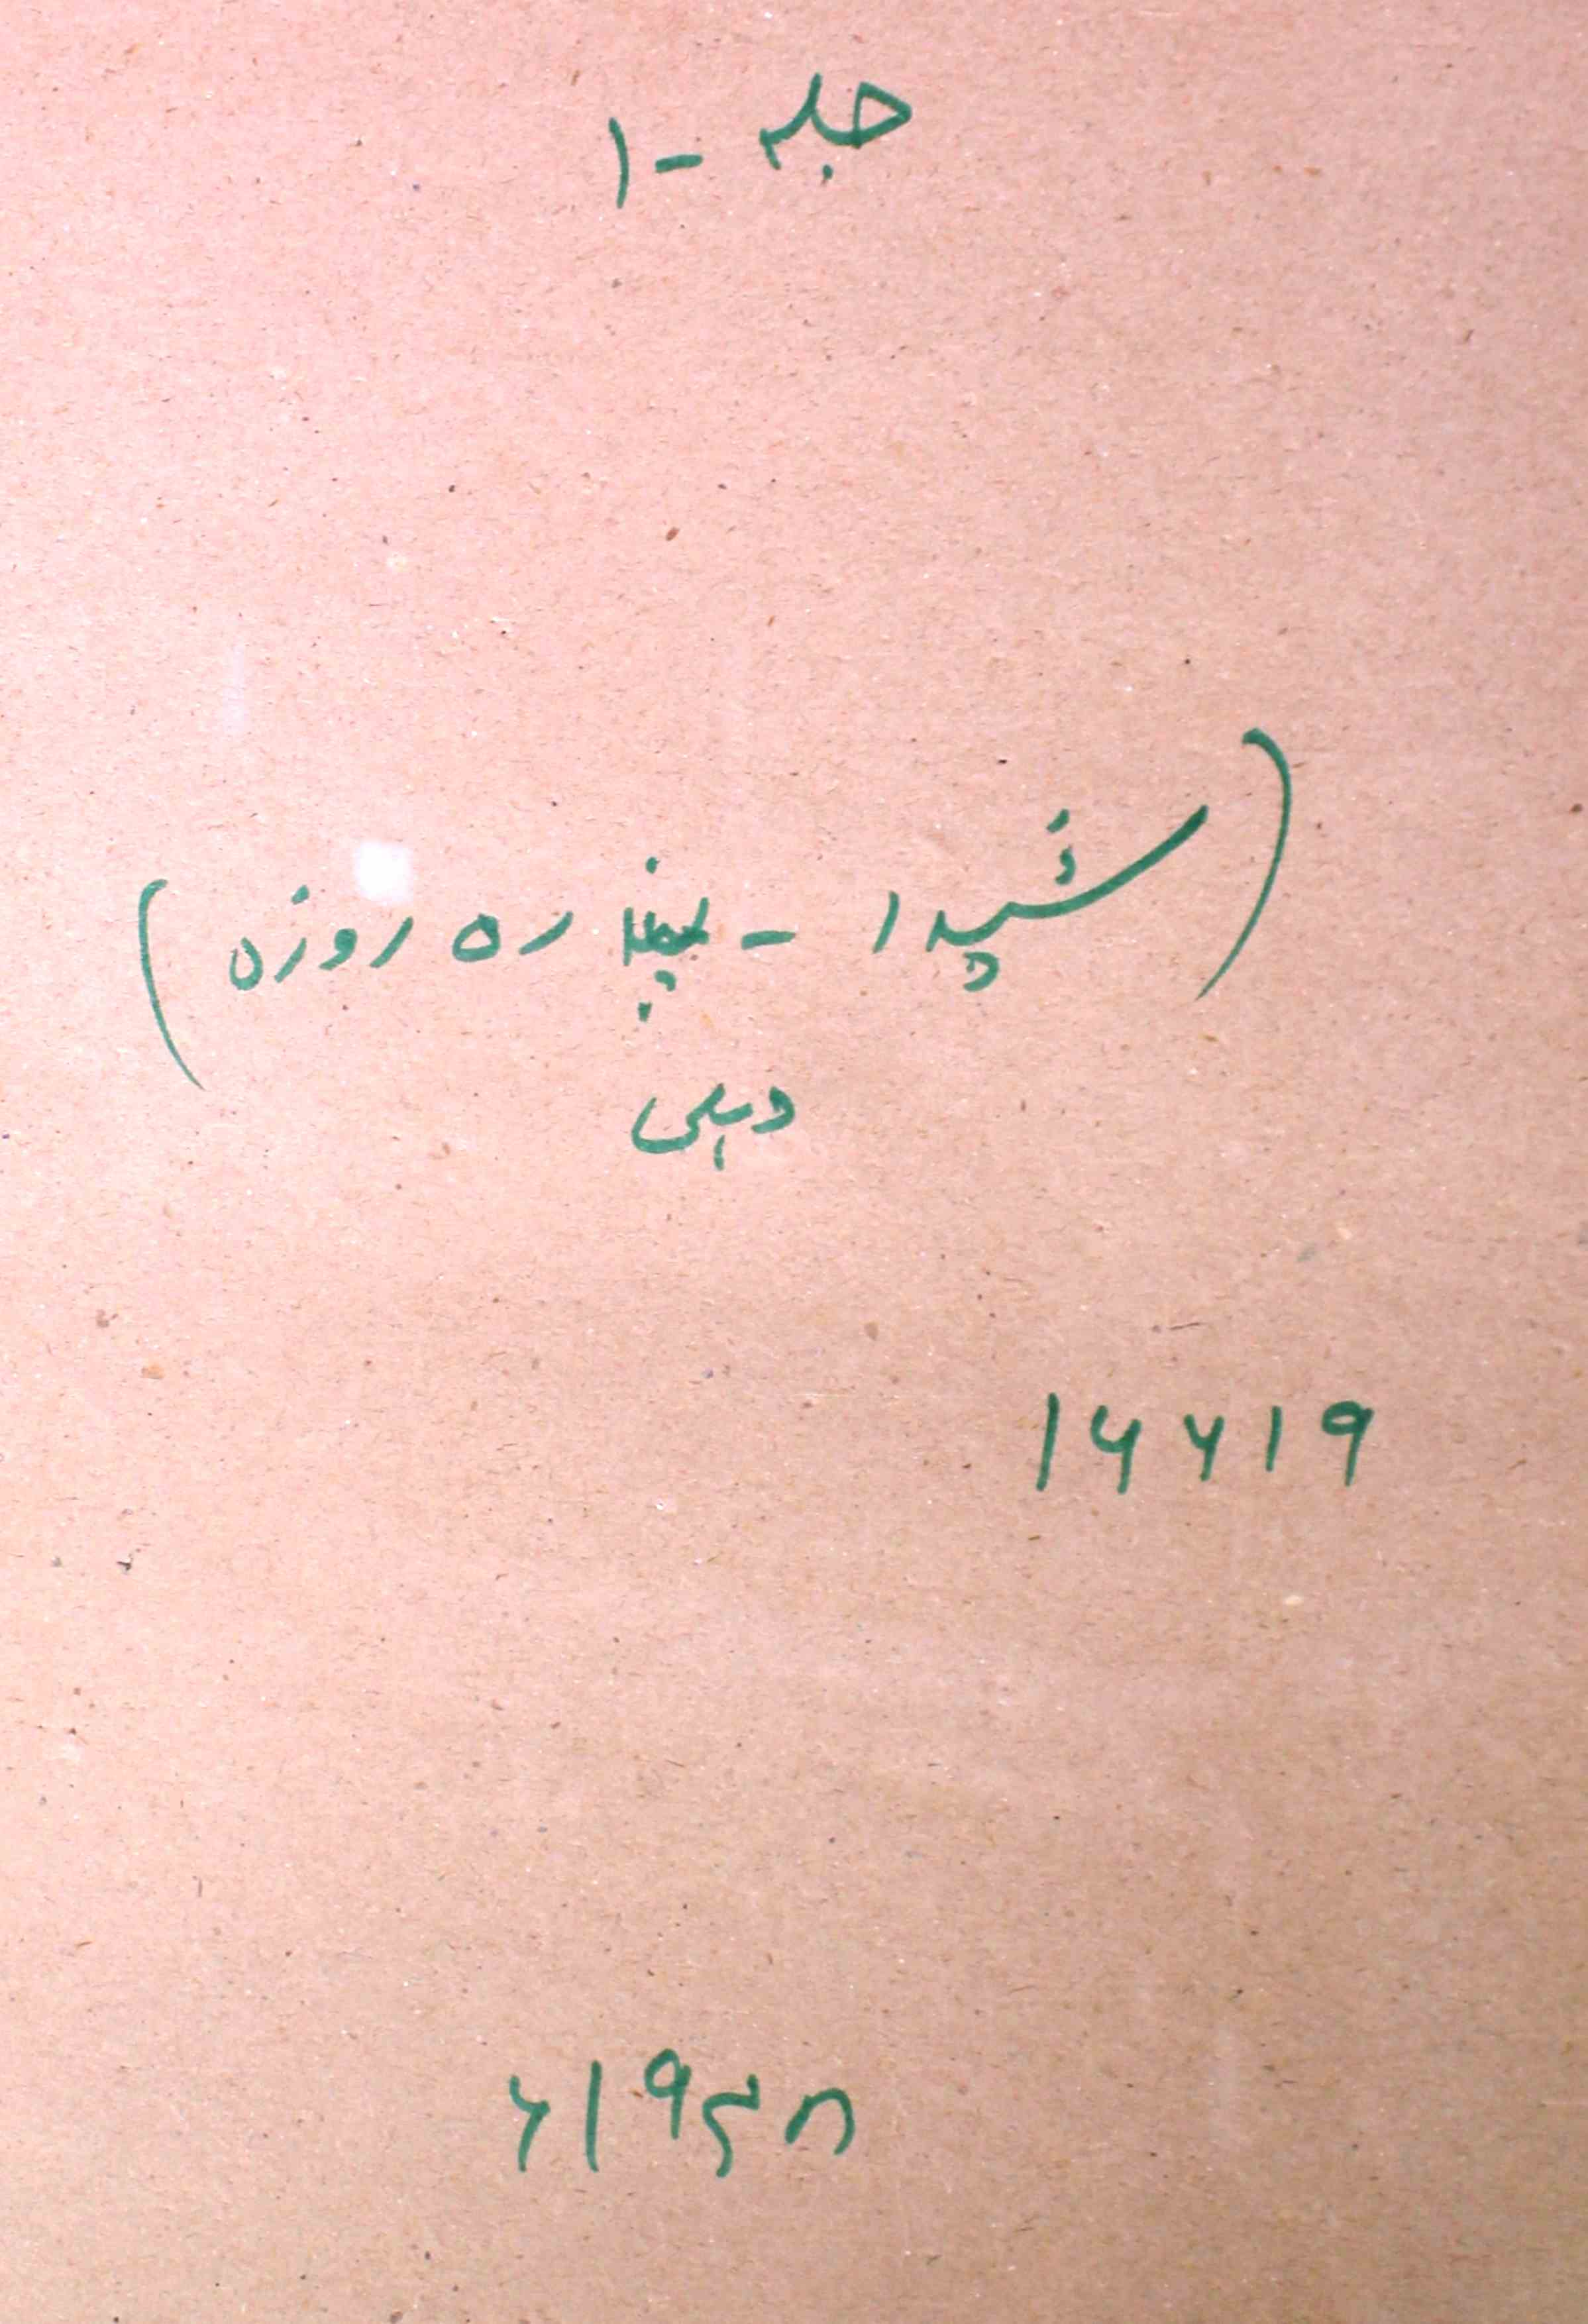 جلد - ۱
(شیدا - پندرہ روزہ)
دہلی
۱۶۶۱۹
۶۱۹۴۸